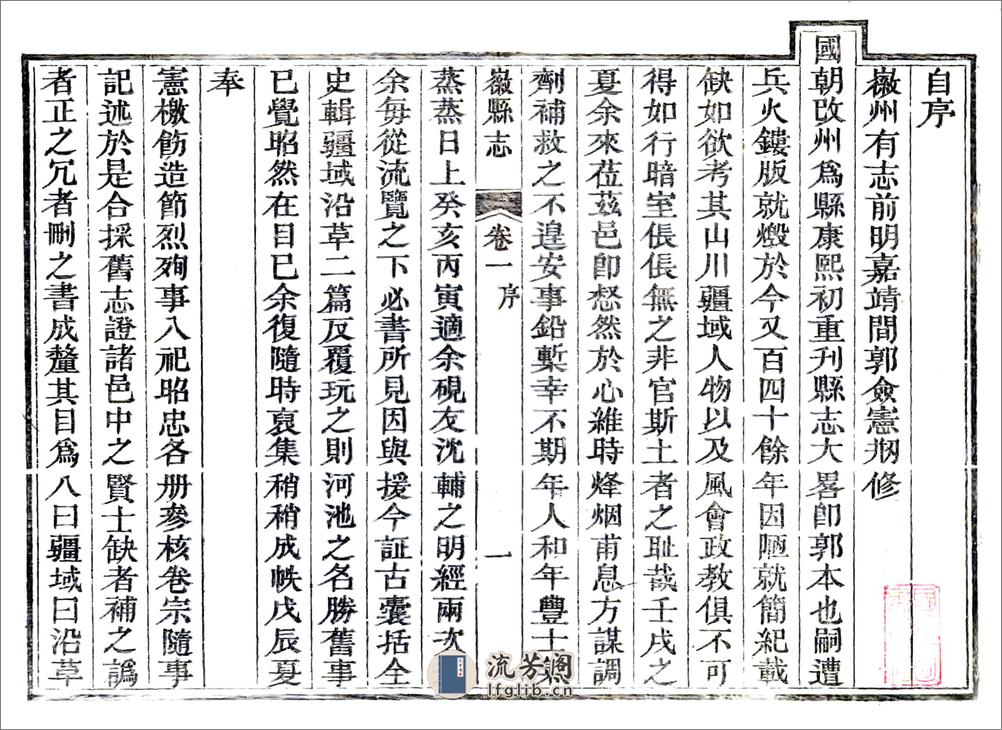 自序
徽州有志前明嘉靖間郭僉憲剏修
國朝改州爲縣康熙初重刊縣志大畧卽郭本也嗣遭
兵火鏤版就燬於今又百四十餘年因陋就簡紀載
缺如欲考其山川疆域人物以及風會政教俱不可
得如行暗室倀倀無之非官斯土者之耻哉壬戌之
夏余來莅茲邑卽惄然於心維時烽烟甫息方謀調
劑補救之不遑安事鉛槧幸不期年人和年豐士
徽縣志 卷一 序 一
蒸蒸日上癸亥丙寅適余硯友沈輔之明經兩次
余每從流覽之下必書所見因與援今証古囊括全
史輯疆域沿革二篇反覆玩之則河池之名勝舊事
已覺昭然在目已余復隨時裒集稍稍成帙戊辰夏
奉
憲檄飭造節烈殉事入祀昭忠各册參核卷宗隨事
記述於是合採舊志證諸邑中之賢士缺者補之譌
者正之冗者刪之書成釐其目爲八曰疆域曰沿革
流芳阁
lfglib.cn